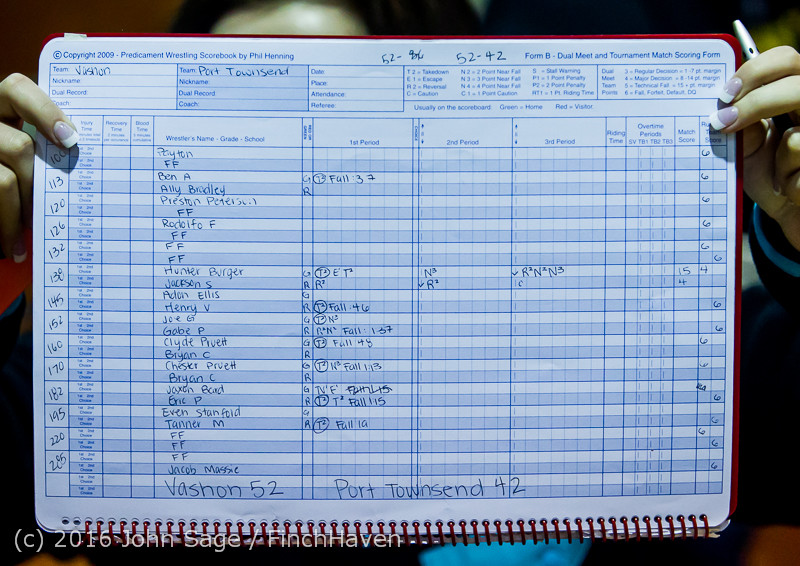 © Copyright 2009 - Predicament Wrestling Scorebook by Phil Henning
52-42
Form B - Dual Meet and Tournament Match Scoring Form
Team: Vashon
Team: Port Townsend
Date:
Nickname:
Nickname:
Place:
Dual Record:
Dual Record:
Attendance:
Coach:
Coach:
Referee:
T 2 = Takedown N 2 = 2 Point Near Fall S = Stall Warning
E 1 = Escape N 3 = 3 Point Near Fall P1 = 1 Point Penalty
R 2 = Reversal N 4 = 4 Point Near Fall P2 = 2 Point Penalty
C = Caution C 1 = 1 Point Caution RT1 = 1 Pt. Riding Time
Dual 3 = Regular Decision = 1-7 pt. margin
Meet 4 = Major Decision = 8-14 pt. margin
Team 5 = Technical Fall = 15 + pt. margin
Points 6 = Fall, Forfeit, Default, DQ
Usually on the scoreboard: Green = Home Red = Visitor
Injury Time
Recovery Time
Blood Time
Wrestler's Name - Grade - School
1st Period
2nd Period
3rd Period
Riding Time
Overtime Periods
SV TB1 TB2 TB3
Match Score
Peyton 6
FF
113 Ben A G T² Fall :37 6
Ally Bradley R
120 Preston
FF
126 Rodolfo F 6
FF
132 FF 6
FF 6
138 Hunter Burger G T² E' T² N³ R²N²N³ 15 4
Jackson S R R² R² 4
145 Aidan Ellis G
Henry V R T² Fall :46 6
152 Joe G G T² N³
Gabe P R R²N² Fall: 1:37 6
160 Clyde Pruett G T² Fall :48 6
Bryan C R
170 Chester Pruett G T² N³ Fall 1:13 6
Bryan C R
182 Jaxon G
Eric P R T² T² Fall 1:15 6
195 Even Stanfold G
Tanner M R T² Fall 6
220 FF 6
FF 6
285 FF
Jacob Massie 6
Vashon 52 Port Townsend 42
(c) 2016 John Sage / FinchHaven